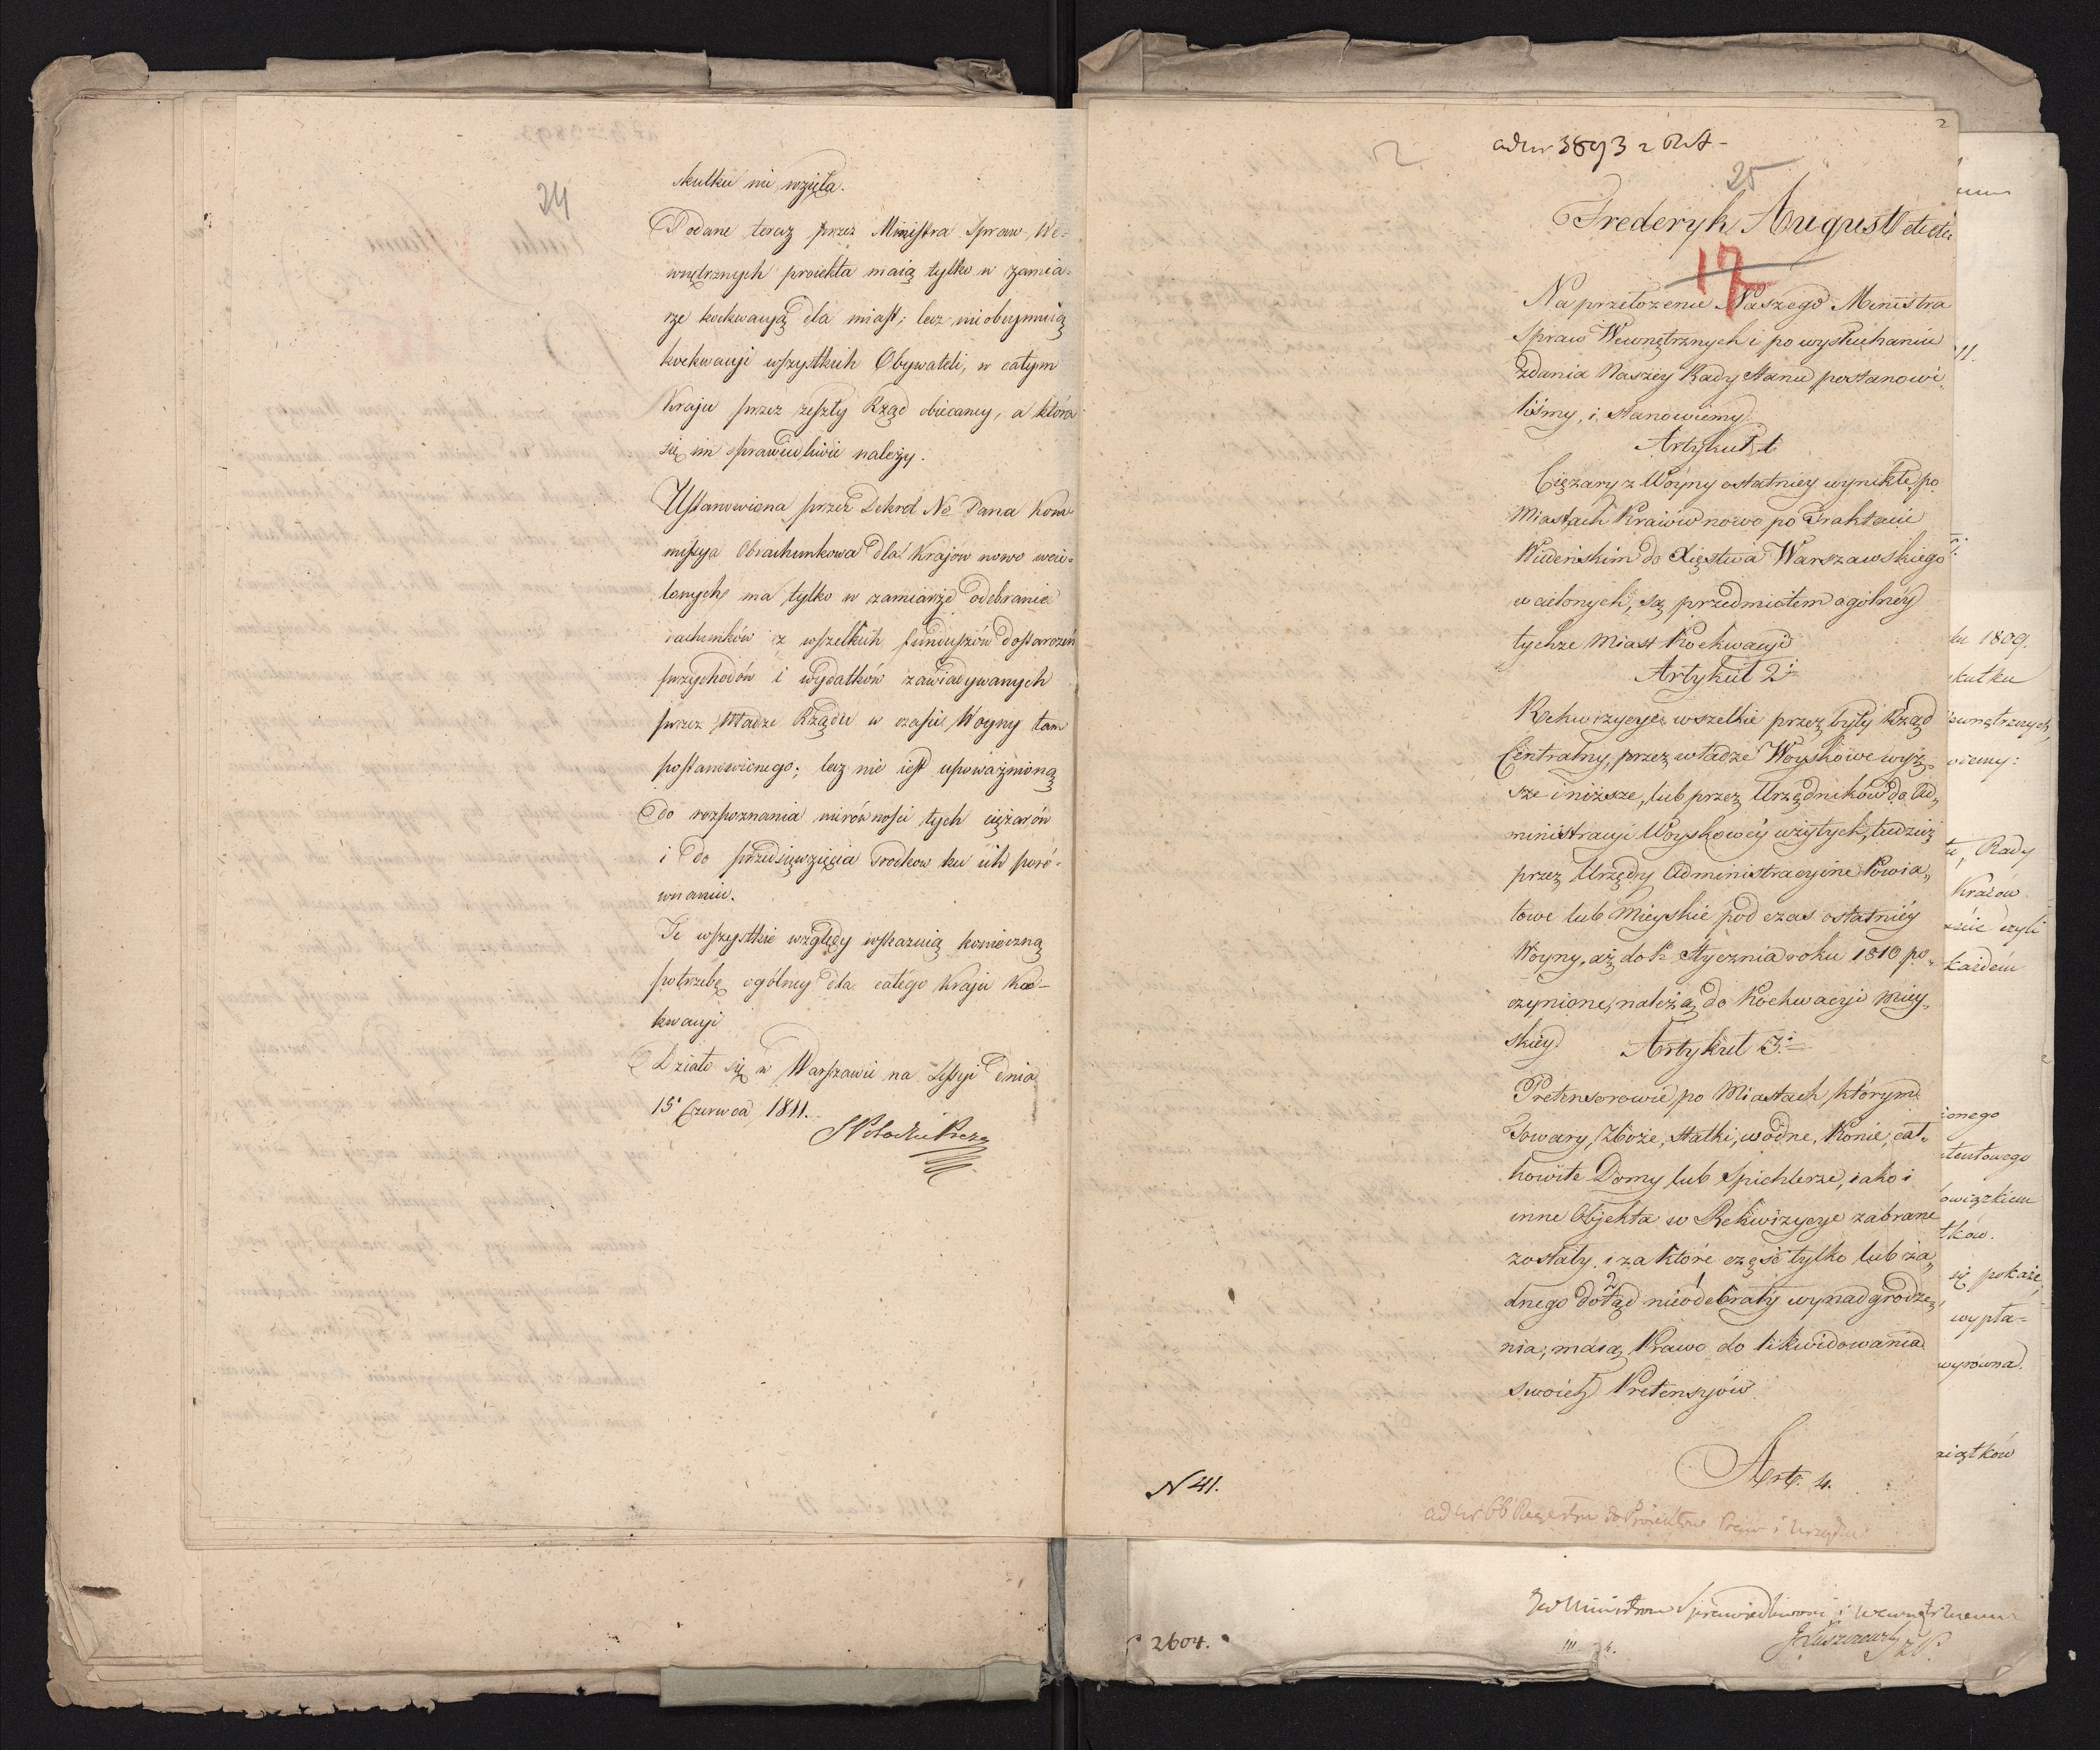 24
skutku nie wzięła.
Podane teraz przez Ministra Spraw We=
wnętrznych proiekta maią tylko w zamia=
rze koekwacyą dla miast; lecz nie obeymuią
koekwacyi wszystkich Obywateli, w całym
Kraju przez zeszły Rząd obiecaney, a która
się im sprawiedliwie należy.
Ustanowiona przez Dekret N. Pana Kom=
missya Obrachunkowa dla Krajow nowo wcie=
lonych ma tylko w zamiarze odebranie
rachunków z wszelkich funduszów dostarczeń
przychodów i wydatków zawiadywanych
przez Władze Rządu w czasie Woyny tam
postanowionego; lecz nie iest upoważnioną
do rozpoznania nierówności tych ciężarów
i do przedsięwzięcia srodkow ku ich poró=
wnaniu.
Te wszystkie względy wskazuią konieczną
potrzebę ogólney dla całego Kraju Ko=
kwacyi
Działo się w Warszawie na Sessyi dnia
15 Czerwca 1811.
2
ad nr 3893
25
Frederyk August etc etc
17
Na przełożenie Naszego Ministra
Spraw Wewnętrznych i po wysłuchaniu
Zdania Naszey Rady Stanu postanowi
liśmy, i stanowiemy.
Artykuł 1
Ciężary z Woyny ostatniey wynikłe, po
Miastach Kraiow nowo po Traktacie
Wiedeńskim do Xięstwa Warszawskiego
wcielonych, są przedmiotem ogólney
tychże Miast Koekwacyi
Artykuł 2
Rekwizycye wszelkie przez były Rząd
Centralny, przez władze Woyskowe wyż=
sze i niższe, lub przez Urzędników do Ad„
ministracyi Woyskowey użytych, tudzież
przez Urzędy Administracyine Powia„
towe lub Mieyskie podczas ostatniey
Woyny, aż do Stycznia roku 1810 po„
czynione, należą do Koekwacyi Miey„
skiey.
Artykuł 3
Pretensorowie po Miastach, którym
Towary, Zboże, Statki, wodne, Konie, cał„
kowite Domy lub Spichlerze, iako i
inne Objekta w Rekwizycye zabrane
zostały i za które część tylko lub ża„
dnego dotąd nieodebrały wynadgrodze„
nia, maią Prawo do likwidowania
swoich Pretensyów.
Art. 4.
N 41.
2604.
ku 1809.
skutku
ewnętrznych,
owiemy:
tu, Rady
Kraiów
każdem
ionego
owiązkiem
tków.
się pokaże,
wypła=
wyrówna.